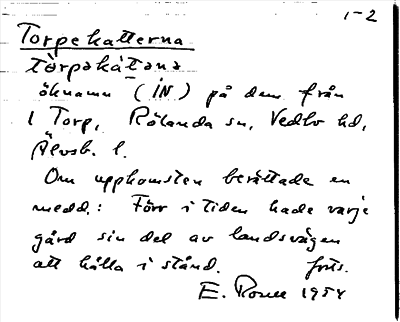 1-2
Torpekatterna
tòrpəkátənə
öknamn (IN) på dem från
1 Torp, Rölanda sn, Vedbo hd,
Älvsb. l.
Om uppkomsten berättade en
medd.: Förr i tiden hade varje
gård sin del av landsvägen
att hålla i stånd. forts.
E. Rosell 1954